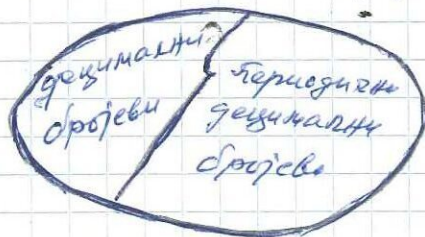 децимални
бројеви
периодични
децимални
бројеви